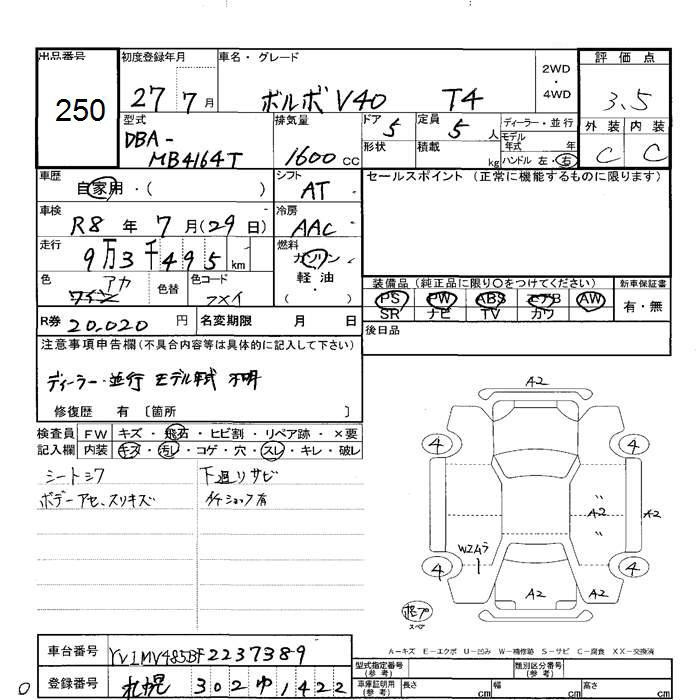 出品番号 初度登録年月 車名・グレード 2WD・4WD 評価点
250 27 7月 ボルボ V40 T4 3.5
型式 排気量 ドア 定員 ディーラー・並行 外装 内装
DBA-MB4164T 1600cc 5 5人 モデル年式 年 C C
形状 積載 kg ハンドル 左・右
車歴 シフト セールスポイント(正常に機能するものに限ります)
自家用・( ) AT・
車検 冷房
R8年 7月(29日) AAC
走行 燃料
9万3千495km ガソリン・軽油・
色 アカ 色替 色コード
ワイン
装備品(純正品に限り○をつけてください) 新車保証書
PS PW ABS エアB AW 有・無
SR ナビ TV カワ
R券 20,020円 名変期限 月 日 後日品
注意事項申告欄(不具合内容等は具体的に記入して下さい)
ディーラー・並行 モデル年式 不明
修復歴 有〔箇所 〕
検査員 FW キズ・飛石・ヒビ割・リペア跡・×要
記入欄 内装 キズ・汚レ・コゲ・穴・スレ・キレ・破レ
シートシワ 下廻りサビ
ボデーアセ、スリキズ
A2
4 4
〃
A2 A2
〃
W2ムラ
4 4
A2 A2
スペア
A2
A-キズ E-エクボ U-凹み W-補修跡 S-サビ C-腐食 XX-交換済
車台番号 YV1MV485BF2237389 型式指定番号(参考) 類別区分番号(参考)
登録番号 札幌 302 ゆ 1422 車庫証明用(参考) 長さ cm 幅 cm 高さ cm
0